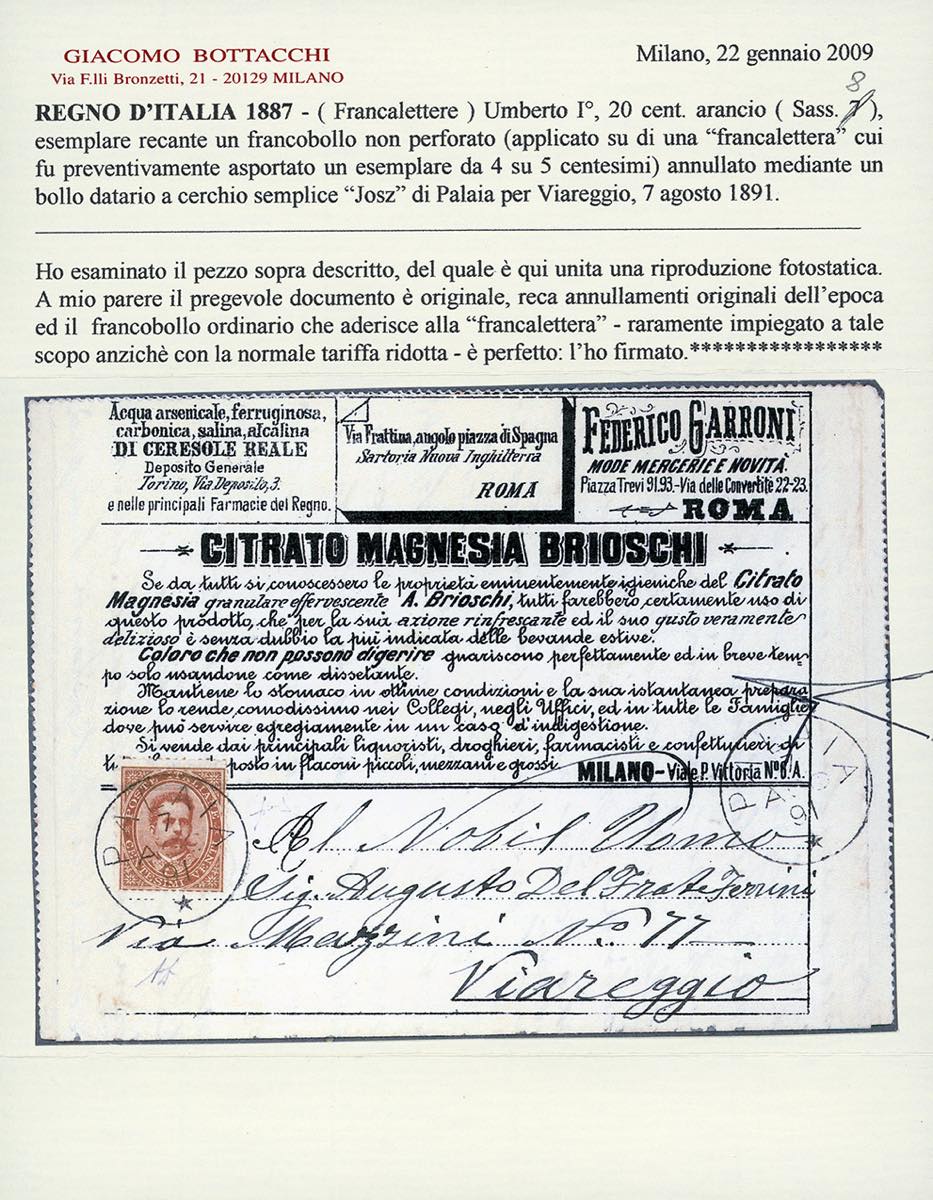 GIACOMO BOTTACCHI
Via F.lli Bronzetti, 21 - 20129 MILANO
Milano, 22 gennaio 2009
8
REGNO D'ITALIA 1887 - ( Francalettere ) Umberto I°, 20 cent. arancio ( Sass. 7 ),
esemplare recante un francobollo non perforato (applicato su di una “francalettera” cui
fu preventivamente asportato un esemplare da 4 su 5 centesimi) annullato mediante un
bollo datario a cerchio semplice “Josz” di Palaia per Viareggio, 7 agosto 1891.
Ho esaminato il pezzo sopra descritto, del quale è qui unita una riproduzione fotostatica.
A mio parere il pregevole documento è originale, reca annullamenti originali dell’epoca
ed il francobollo ordinario che aderisce alla “francalettera” - raramente impiegato a tale
scopo anzichè con la normale tariffa ridotta - è perfetto: l’ho firmato.*****************
Acqua arsenicale, ferruginosa,
carbonica, salina, alcalina
DI CERESOLE REALE
Deposito Generale
Torino, Via Deposito, 3.
e nelle principali Farmacie del Regno.
Via Frattina, angolo piazza di Spagna
Sartoria Nuova Inghilterra
ROMA
FEDERICO GARRONI
MODE MERCERIE E NOVITÀ
Piazza Trevi 91.93.-Via delle Convertite 22-23.
ROMA
CITRATO MAGNESIA BRIOSCHI
Se da tutti si conoscessero le proprietà eminentemente igieniche del Citrato
Magnesia granulare effervescente A. Brioschi, tutti farebbero certamente uso di
questo prodotto, che per la sua azione rinfrescante ed il suo gusto veramente
delizioso è senza dubbio la più indicata delle bevande estive.
Coloro che non possono digerire guariscono perfettamente ed in breve tem-
po solo usandone come dissetante.
Mantiene lo stomaco in ottime condizioni e la sua istantanea prepara
zione lo rende comodissimo nei Collegi, negli Uffici, ed in tutte le Famiglie
dove può service egregiamente in un caso d'indigestione.
Si vende dai principali liquoristi, droghieri, farmacisti e confettureri di
posto in flaconi piccoli, mezzani e grossi
MILANO - Viale P. Vittoria N° 6. A.
PALAIA
7
A
91
PALAIA
7
A
91
Al Nobil Uomo
Sig. Augusto Del Frate Ferrini
Via Mazzini N.° 77
Viareggio